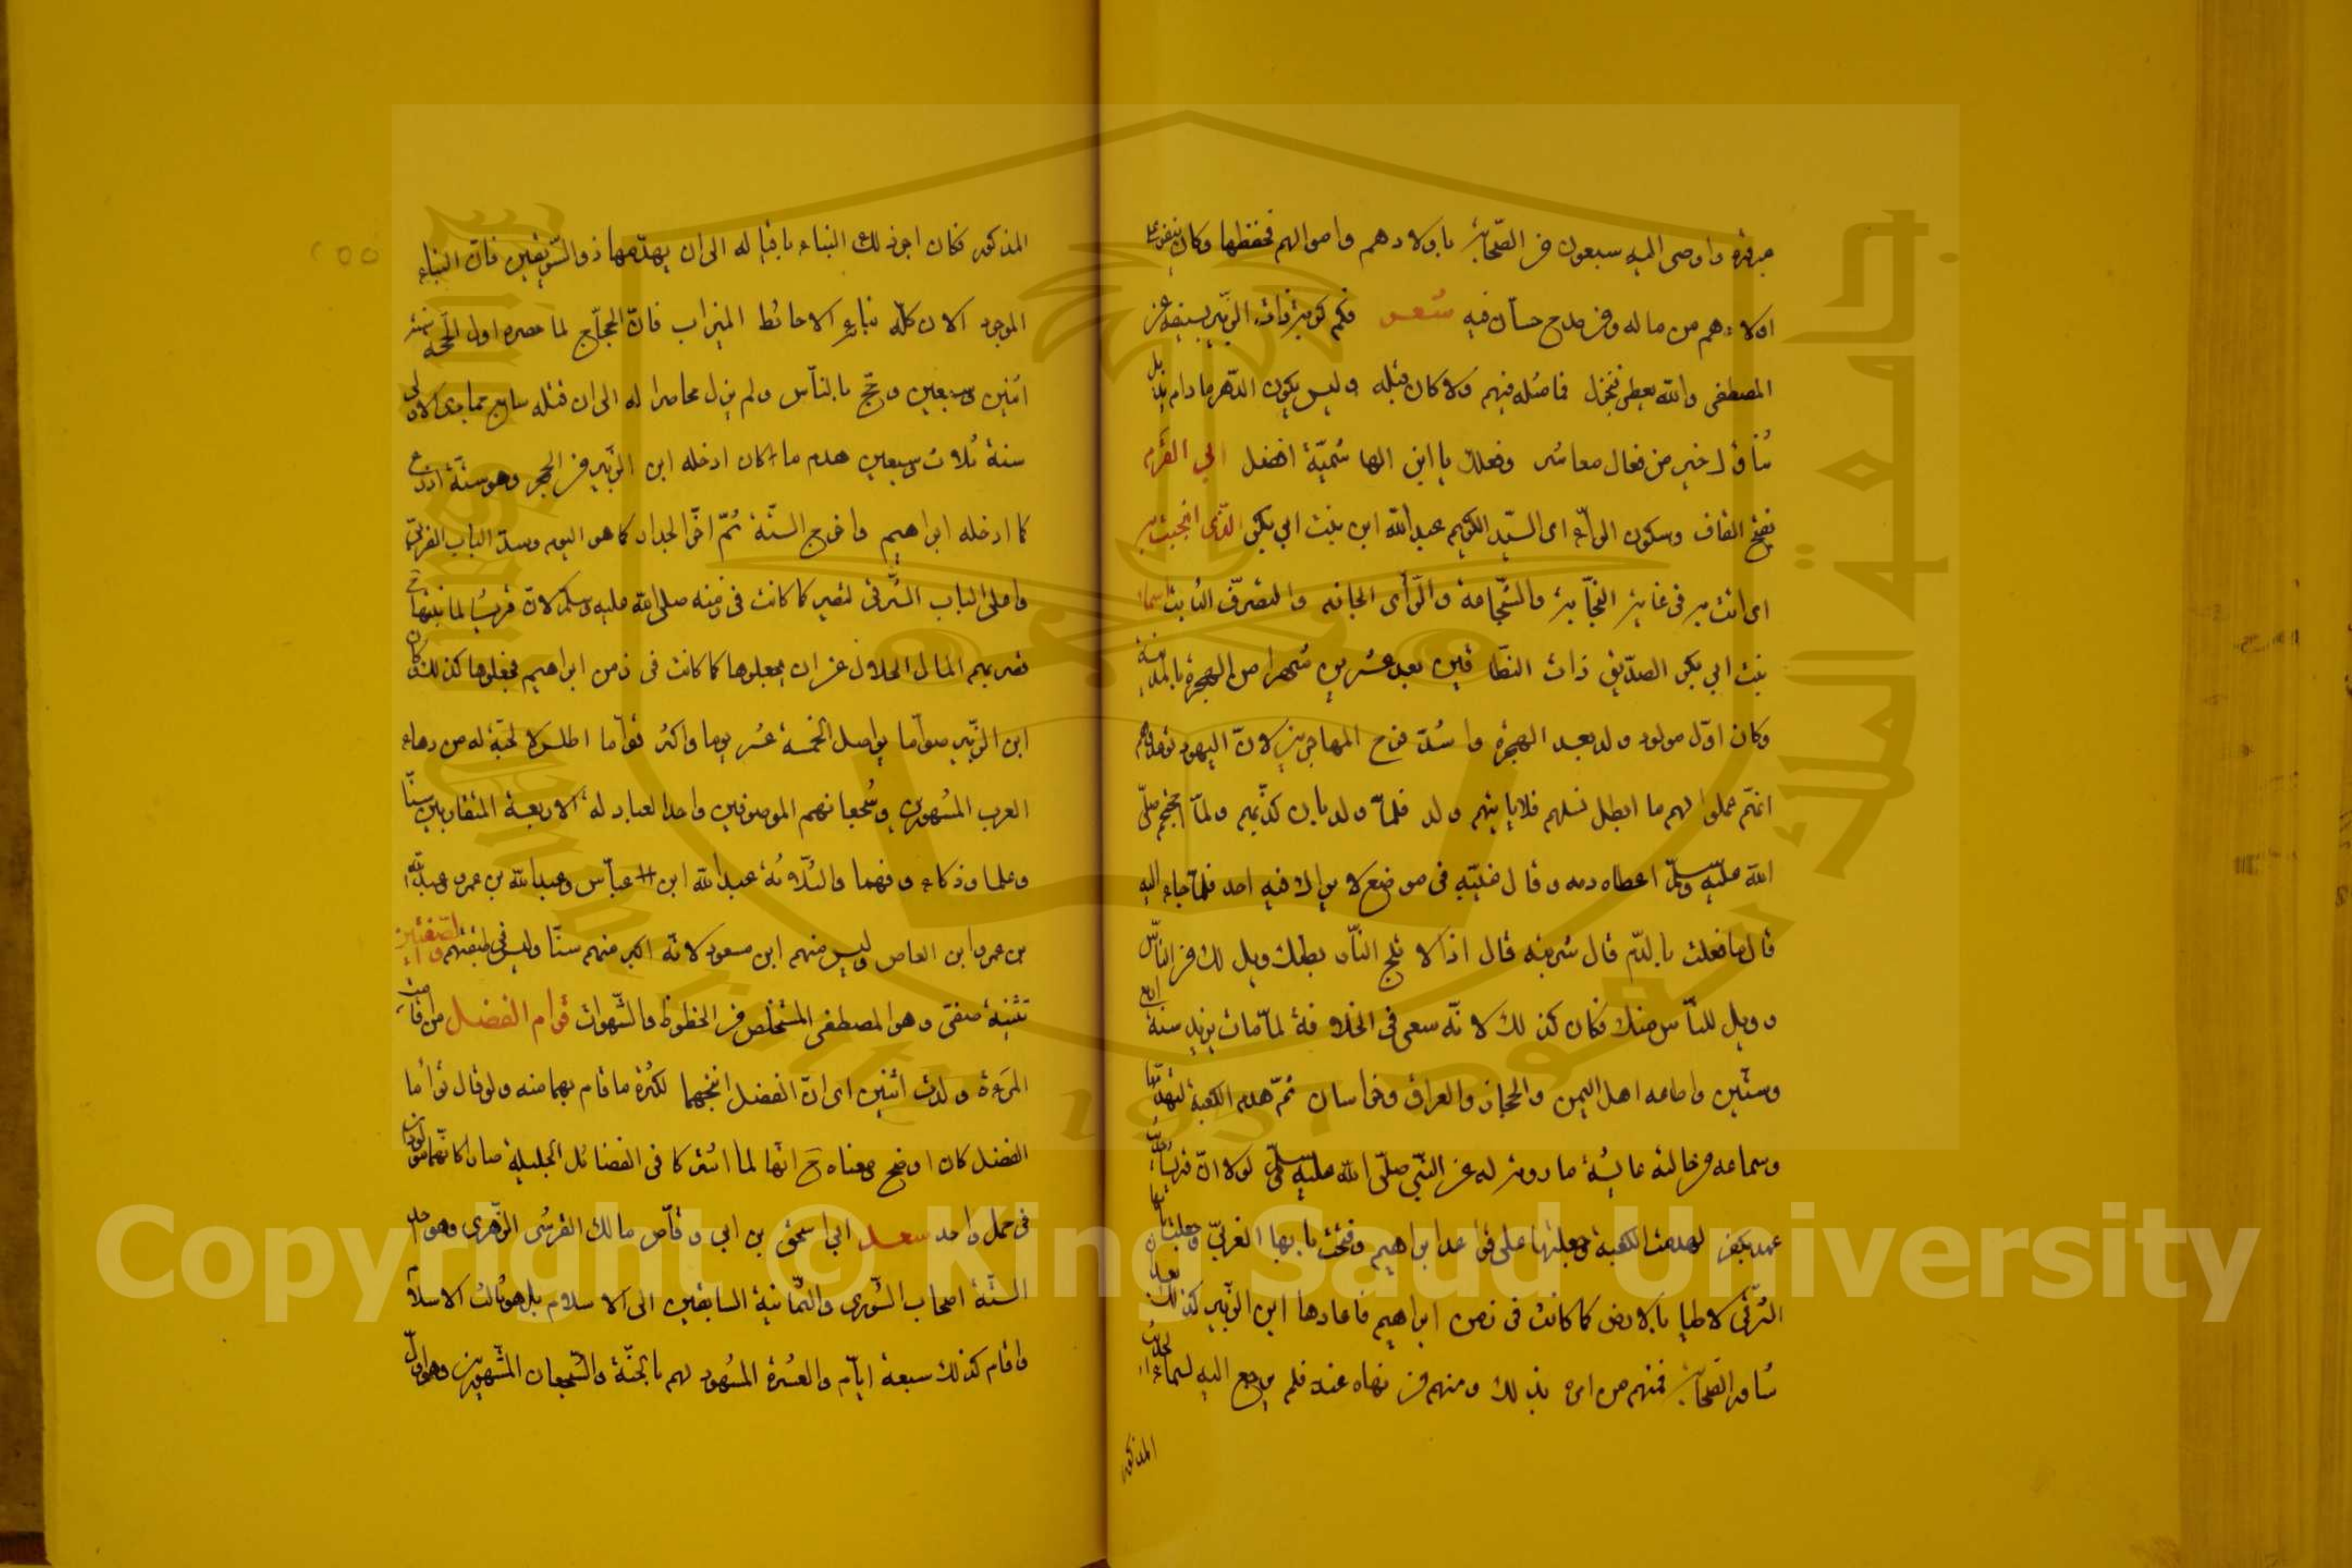 مبرقه واوصى اليه سبعون من الصحابة باولادهم واموالهم فحفظها وكان ينفق على
اولادهم من ماله وفي مدح حسان فيه شعر فكم كربة ذاد الزبير بسيفه عن
المصطفى والله يعطي فيجزل فما مثله فيهم ولا كان قبله وليس يكون الدهر ما دام يذبل
ثناؤك خير من فعال معاشر وفعلك يا ابن الهاشمية افضل ابي القرم
بفتح القاف وسكون الراء اى السيد الكريم عبد الله ابن بنت ابي بكر الذى انجبت به
اى اتت به فى غاية النجابة والشجاعة والرأى الجازم والتصرف الثابت اسماء
بنت ابي بكر الصديق ذات النطاقين بعد عشرين شهرا من الهجرة بالمدينة
وكان اول مولود ولد بعد الهجرة واشتد فرح المهاجرين لان اليهود توعدهم
انهم عملوا لهم ما ابطل نسلهم فلا يأتيهم ولد فلما ولد بان كذبهم ولما احتجم صلى
الله عليه وسلم اعطاه دمه وقال غيبه فى موضع لا يراك فيه احد فلما جاء اليه
قال ما فعلت بالدم قال شربته قال اذا لا تلج النار بطنك ويل لك من الناس
وويل للناس منك فكان كذلك لانه سعى فى الخلافة لما مات يزيد سنة اربع
وستين واطاعه اهل اليمن والحجاز والعراق وخراسان ثم هدم الكعبة لتهدمها
وسماعه من خالته عايشة ما روته له عن النبي صلى الله عليه وسلم لولا ان قريشا حديث
عهد بكفر لهدمت الكعبة وجعلتها على قواعد ابراهيم وفتحت بابها الغربي وجعلت بابها
الشرقى لاطيا بالارض كما كانت فى زمن ابراهيم فاعادها ابن الزبير كذلك بعد ان
شاور الصحابة فمنهم من امره بذلك ومنهم من نهاه عنه فلم يرجع اليه لسماعه الحديث
المذكور
المذكور فكان اجر ذلك البناء باقيا له الى ان يهدمها ذو السويقتين فان البناء
الموجود الان كله بناؤه الا حائط الميزاب فان الحجاج لما حصره اول الحجة سنة
اثنين وسبعين وحج بالناس ولم يزل محاصرا له الى ان قتله سابع جمادى الاولى
سنة ثلاث وسبعين هدم ما كان ادخله ابن الزبير من الحجر وهو ستة اذرع
كما ادخله ابراهيم واخرج الستة ثم اخر الجدار كما هو اليوم وسد الباب الغربي
واعلى الباب الشرقى لتصير كما كانت فى زمنه صلى الله عليه وسلم لان قريشا لما بنتها
قصر بهم المال الحلال عن ان يجعلوها كما كانت فى زمن ابراهيم فجعلوها كذلك وكان
ابن الزبير صواما يواصل الخمسة عشر يوما واكثر قواما اطلس لا لحية له من دهاة
العرب المشهورين وشجعانهم الموصوفين واحد العبادلة الاربعة المتقاربين سنا
وعلما وذكاء وفهما والثلاثة عبد الله ابن عباس وعبد الله بن عمر وعبد الله
بن عمرو ابن العاص وليس منهم ابن مسعود لانه اكبر منهم سنا وليس فى طبقتهم والصفيين
تثنية صفى وهو المصطفى المستخلص من الحظوظ والشهوات توام الفضل من اتأمت
المرءة ولدت اثنين اى ان الفضل انتجهما لكثرة ما قام بهما منه ولو قال توأما
الفضل كان اوضح ومعناه ح انهما لما اشتركا فى الفضائل الجليلة صارا كانهما مولودان
فى حمل واحد سعد ابي اسحق بن ابي وقاص مالك القرشى الزهرى وهو احد
الستة اصحاب الشورى والثمانية السابقين الى الاسلام بل هو ثالث الاسلام
واقام كذلك سبعة ايام والعشرة المشهود لهم بالجنة والشجعان المشهورين وهو اول
Copyright © King Saud University
جامعة الملك سعود
King Saud University
1957